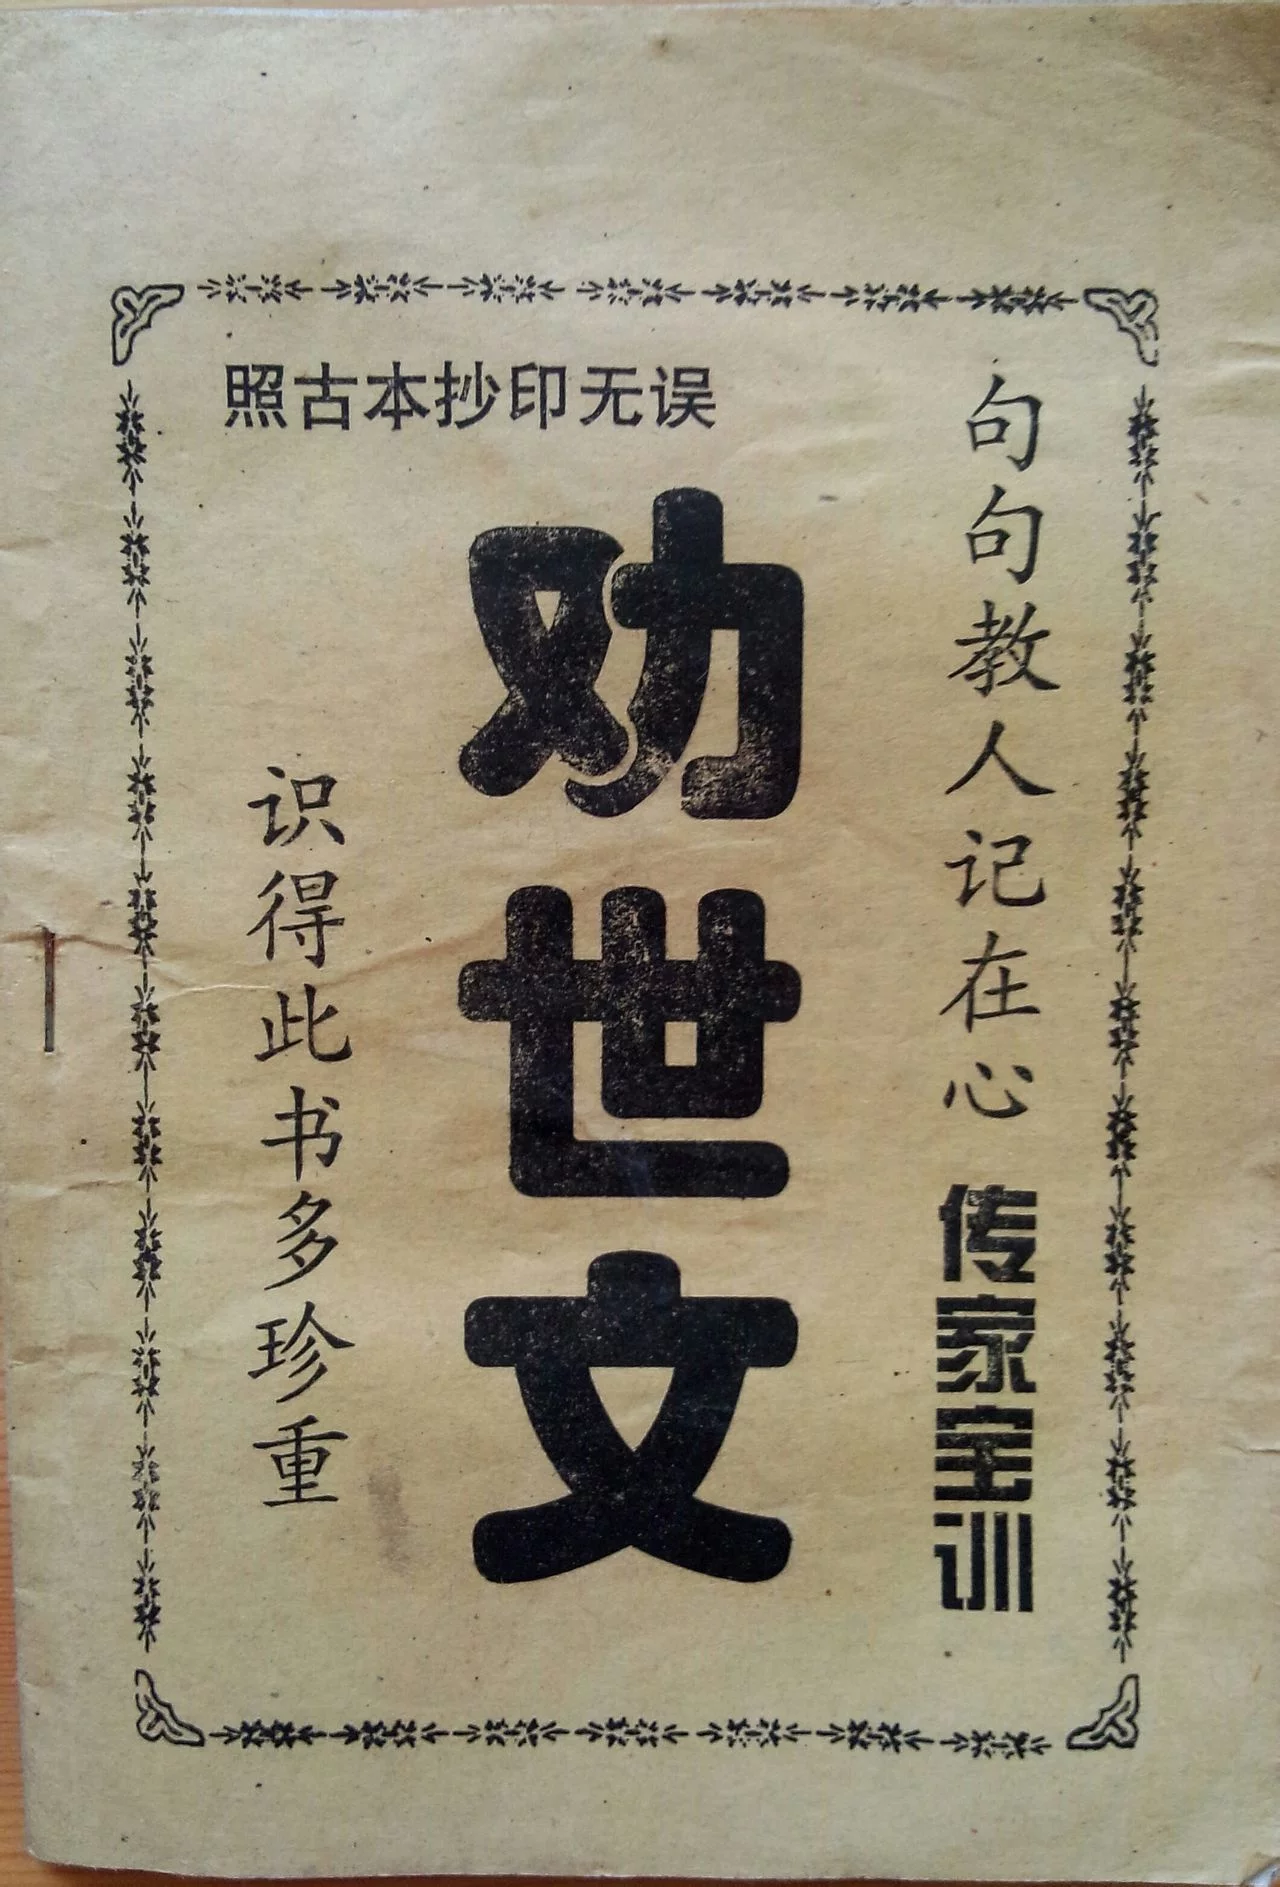 照古本抄印无误
句句教人记在心
传家宝训
劝世文
识得此书多珍重